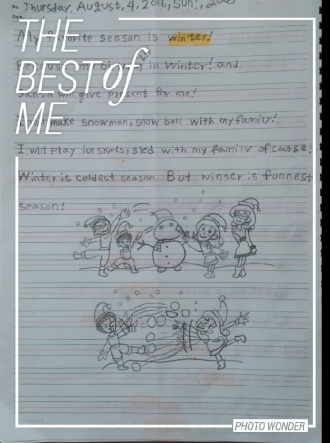 Thursday, August, 4, 2016, sun,
THE
BEST of
ME
My favorite season is winter!
in winter! and
will give present for me!
make snowman, snow ball with my family!
I will play ice skats, sled with my family of course!
Winter is coldest season. But winter is funnest
season!
PHOTO WONDER